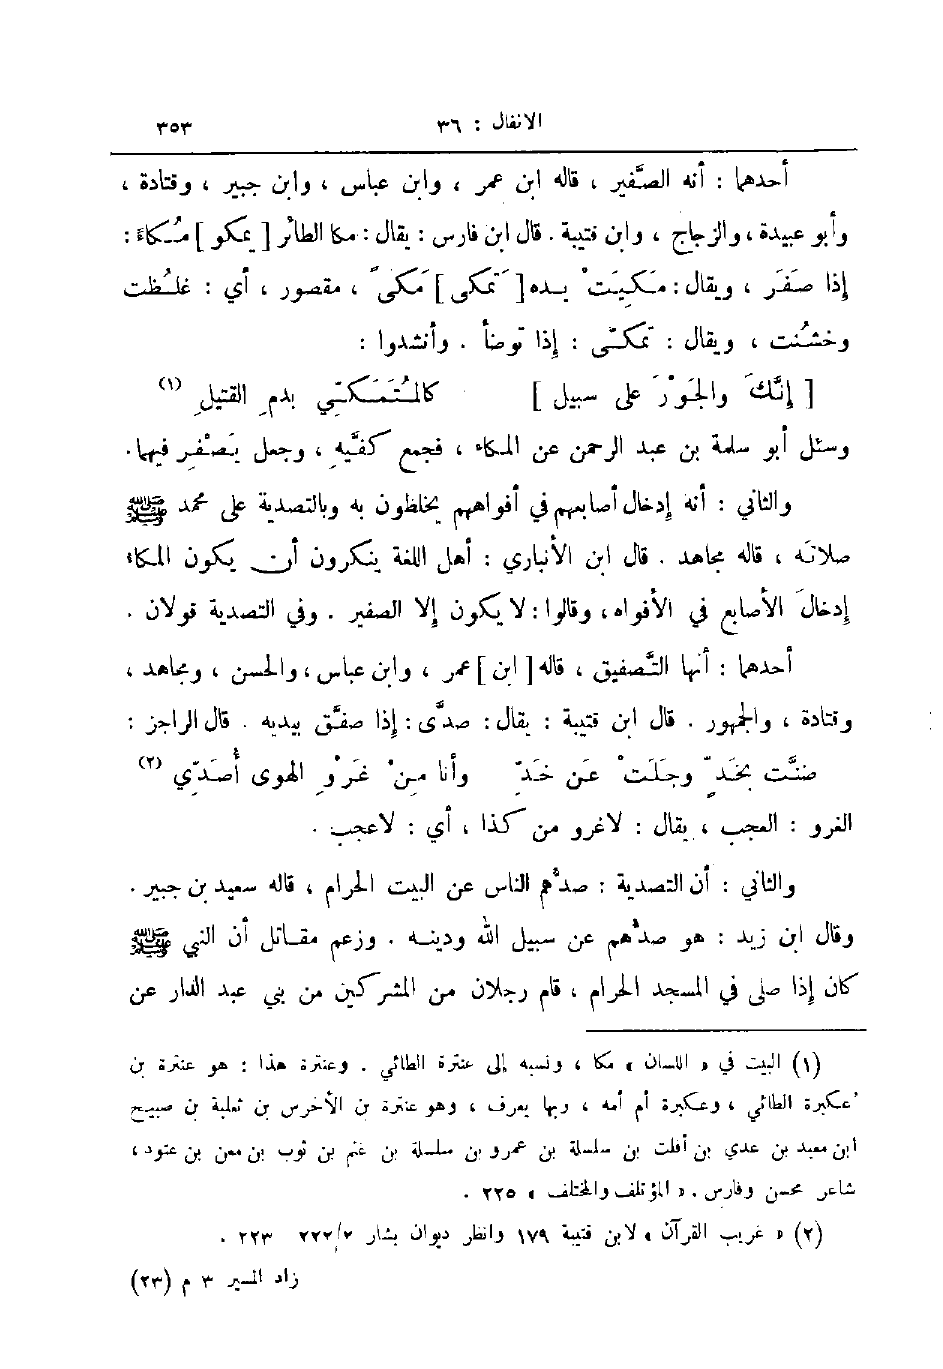 الانفال : ٣٦ ٣٥٣
أحدهما : أنه الصَّفير ، قاله ابن عمر ، وابن عباس ، وابن جبير ، وقتادة ،
وأبو عبيدة ، والزجاج ، وابن قتيبة . قال ابن فارس : يقال : مكا الطائر [ يمكو ] مُكاءً :
إذا صَفَر ، ويقال : مَكِيَتْ يده [ تَمكى ] مَكىً ، مقصور ، أي : غلُظت
وخشُنت ، ويقال : تمكّى : إذا توضأ . وأنشدوا :
[ إنَّكَ والجَوْرَ على سبيل ] كالمُتَمَكِّي بدمِ القتيلِ (١)
وسئل أبو سلمة بن عبد الرحمن عن المكاء ، فجمع كفَّيه ، وجعل يَصْفِر فيهما .
والثاني : أنه إدخال أصابعهم في أفواههم يخلطون به وبالتصدية على محمد ﷺ
صلاتَه ، قاله مجاهد . قال ابن الأنباري : أهل اللغة ينكرون أن يكون المكاء
إدخالَ الأصابع في الأفواه ، وقالوا : لا يكون إلا الصفير . وفي التصدية قولان .
أحدهما : أنها التَّصفيق ، قاله [ ابن ] عمر ، وابن عباس ، والحسن ، ومجاهد ،
وقتادة ، والجمهور . قال ابن قتيبة : يقال : صدَّى : إذا صفَّق بيديه . قال الراجز :
ضنَّت بخَدٍّ وجَلَتْ عَن خَدِّ وأنا مِنْ غَرْوِ الهوى أُصَدِّي (٢)
الغرو : العجب ، يقال : لاغرو من كذا ، أي : لاعجب .
والثاني : أن التصدية : صدُّهم الناس عن البيت الحرام ، قاله سعيد بن جبير .
وقال ابن زيد : هو صدُّهم عن سبيل الله ودينه . وزعم مقاتل أن النبي ﷺ
كان إذا صلى في المسجد الحرام ، قام رجلان من المشركين من بني عبد الدار عن
(١) البيت في « اللسان » مكا ، ونسبه إلى عنترة الطائي . وعنترة هذا : هو عنترة بن
عكبرة الطائي ، وعكبرة أم أمه ، وبها يعرف ، وهو عنترة بن الأخرس بن ثعلبة بن صبيح
ابن معبد بن عدي بن أفلت بن سلسلة بن عمرو بن سلسلة بن غنم بن ثوب بن معن بن عتود ،
شاعر محسن وفارس . « المؤتلف والمختلف » ٢٢٥ .
(٢) « غريب القرآن » لابن قتيبة ١٧٩ وانظر ديوان بشار ٢/٢٢٢ ٢٢٣ .
زاد المسير ٣ م (٢٣)